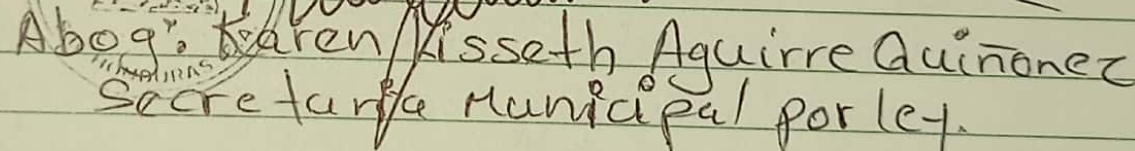 Abog. Karen Lisseth Aguirre Quiñonez
HONDURAS
Secretaria Municipal por ley.